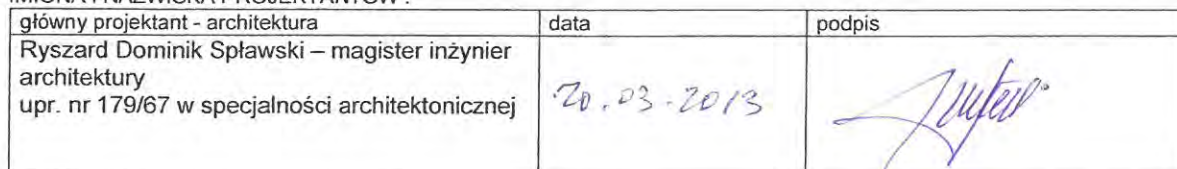 IMIONA I NAZWISKA PROJEKTANTÓW :
główny projektant - architektura
data
podpis
Ryszard Dominik Spławski – magister inżynier
architektury
upr. nr 179/67 w specjalności architektonicznej
20.03.2013